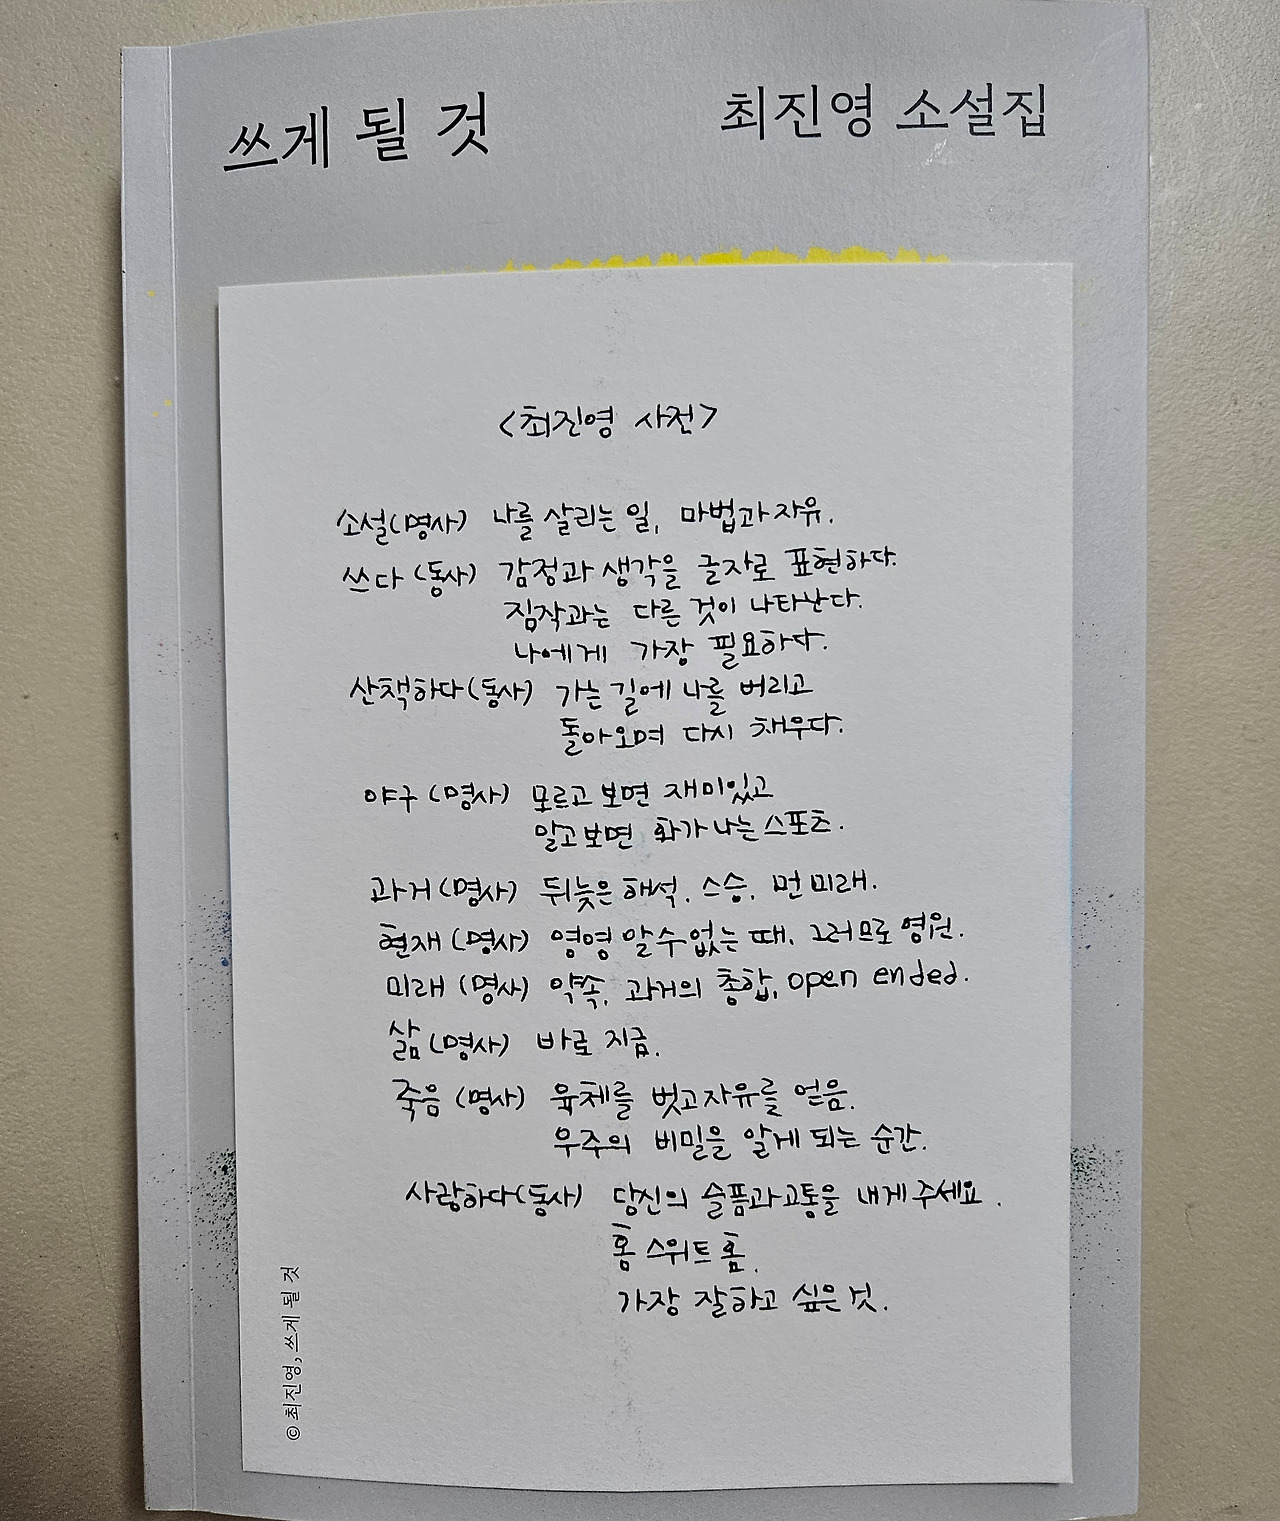 쓰게 될 것
최진영 소설집
<최진영 사전>
소설(명사) 나를 살리는 일, 마법과 자유.
쓰다 (동사) 감정과 생각을 글자로 표현하다.
짐작과는 다른 것이 나타난다.
나에게 가장 필요하다.
산책하다(동사) 가는 길에 나를 버리고
돌아오며 다시 채우다.
야구 (명사) 모르고 보면 재미있고
알고 보면 화가 나는 스포츠.
과거 (명사) 뒤늦은 해석. 스승. 먼 미래.
현재 (명사) 영영 알 수 없는 때. 그러므로 영원.
미래 (명사) 약속, 과거의 총합, open ended.
삶 (명사) 바로 지금.
죽음 (명사) 육체를 벗고 자유를 얻음.
우주의 비밀을 알게 되는 순간.
사랑하다(동사) 당신의 슬픔과 고통을 내게 주세요.
홈 스위트 홈.
가장 잘하고 싶은 것.
© 최진영, 쓰게 될 것